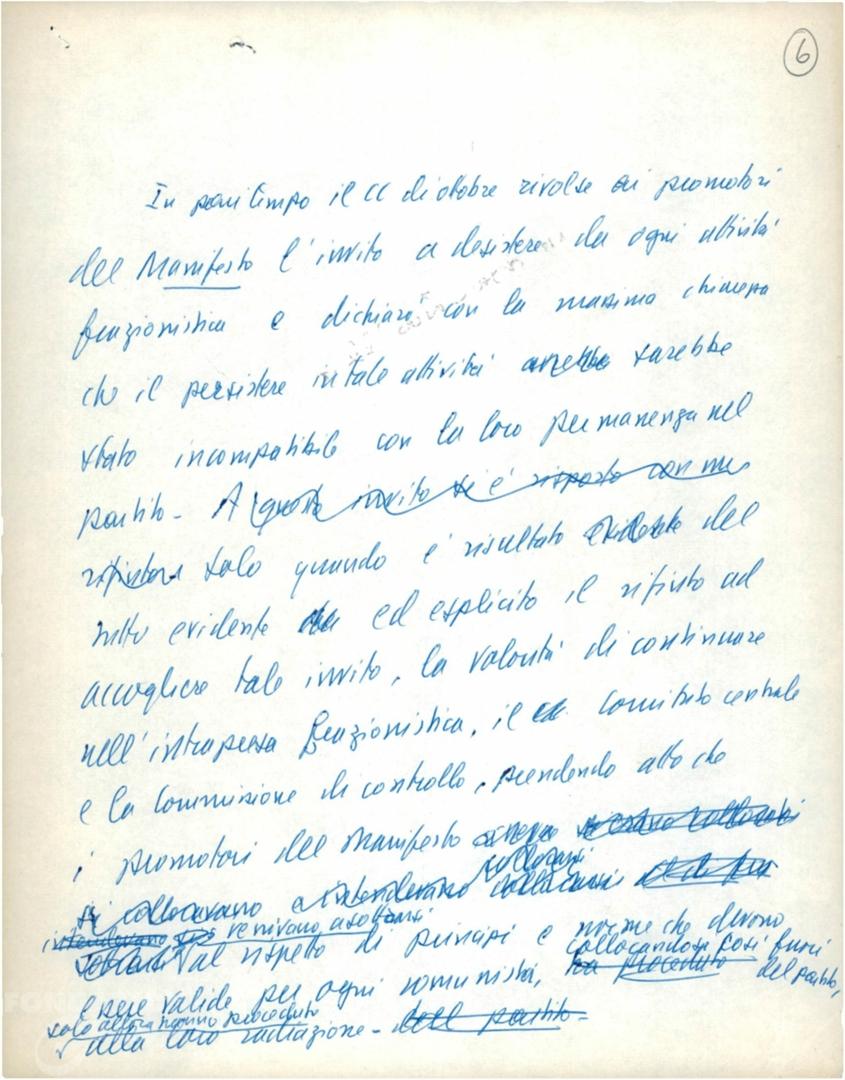 6
In pari tempo il CC di ottobre rivolse ai promotori
del Manifesto l'invito a desistere da ogni attività
frazionistica e dichiarò con la massima chiarezza
che il persistere in tale attività avrebbe sarebbe
stato incompatibile con la loro permanenza nel
partito. A questo invito si è risposto con un
rifiuto solo quando è risultato evidente del
tutto evidente ed esplicito il rifiuto ad
accogliere tale invito, la volontà di continuare
nell'intrapresa frazionistica, il CC Comitato centrale
e la Commissione di controllo, prendendo atto che
i promotori del Manifesto
collocarsi
si collocavano e intendevano collocarsi al di fuori
intendevano venivano a sottrarsi
al rispetto di principi e norme che devono
collocandosi così fuori
ha proceduto del partito,
essere valide per ogni comunista,
solo allora hanno proceduto
alla loro radiazione. dell partito.